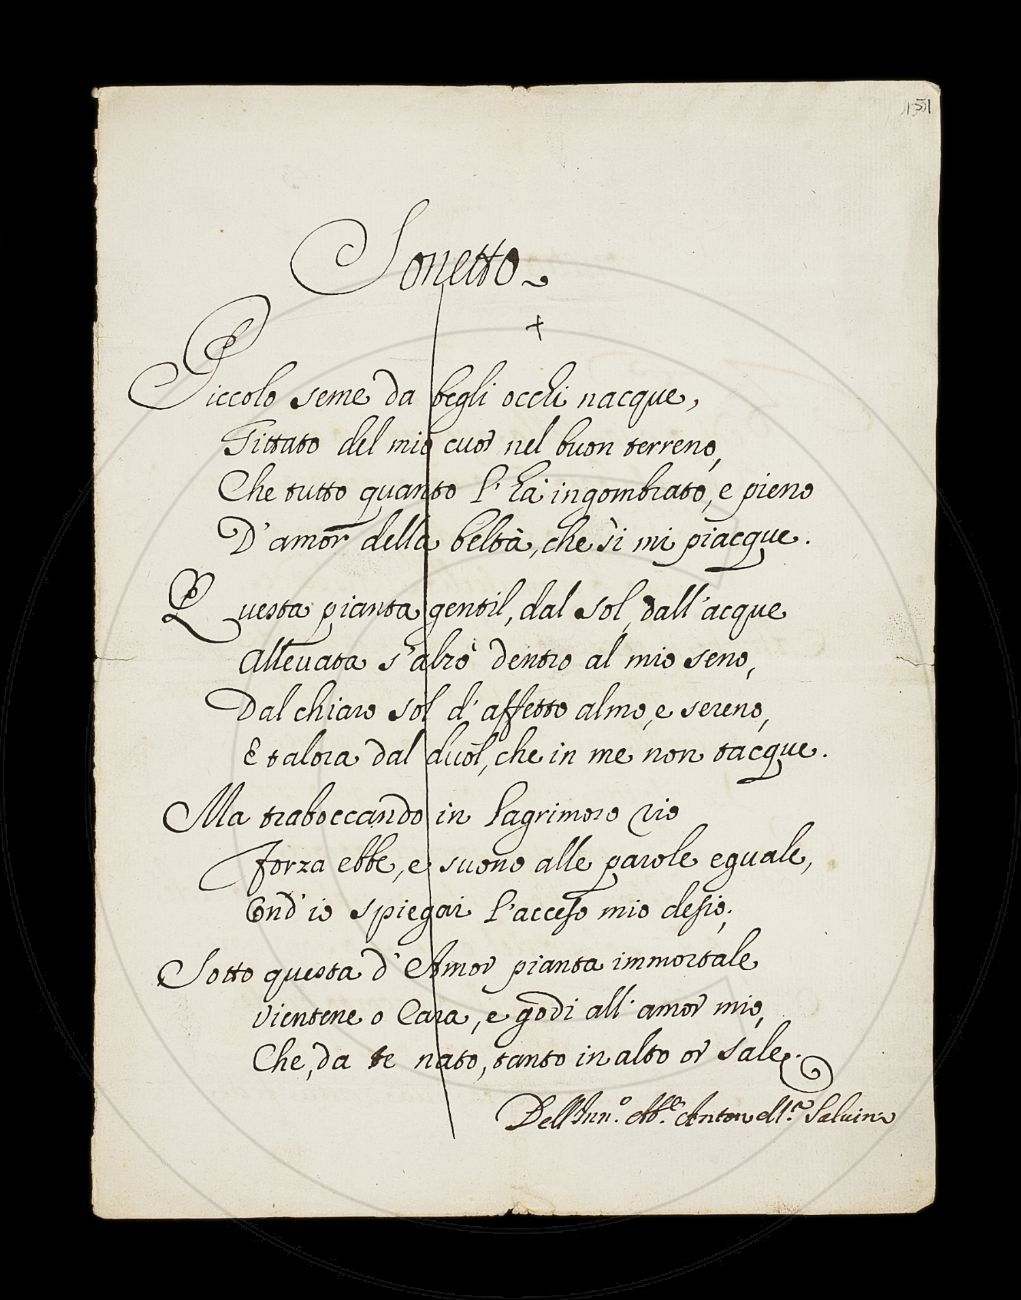 151
Sonetto
Piccolo seme da begli occhi nacque,
Gittato del mio cuor nel buon terreno,
Che tutto quanto l'ha ingombrato, e pieno
D'amor della beltà, che sì mi piacque.
Questa pianta gentil, dal sol, dall'acque
Allevata s'alzò dentro al mio seno,
Dal chiaro sol d'affetto almo, e sereno,
E talora dal duol, che in me non tacque.
Ma traboccando in lagrimoso rio
Forza ebbe, e suono alle parole eguale,
Ond'io spiegai l'acceso mio desio.
Sotto questa d'Amor pianta immortale
Vientene o Cara, e godi all'amor mio,
Che, da te nato, tanto in alto or sale.
Dell' Abe. Anton Ma. Salvini